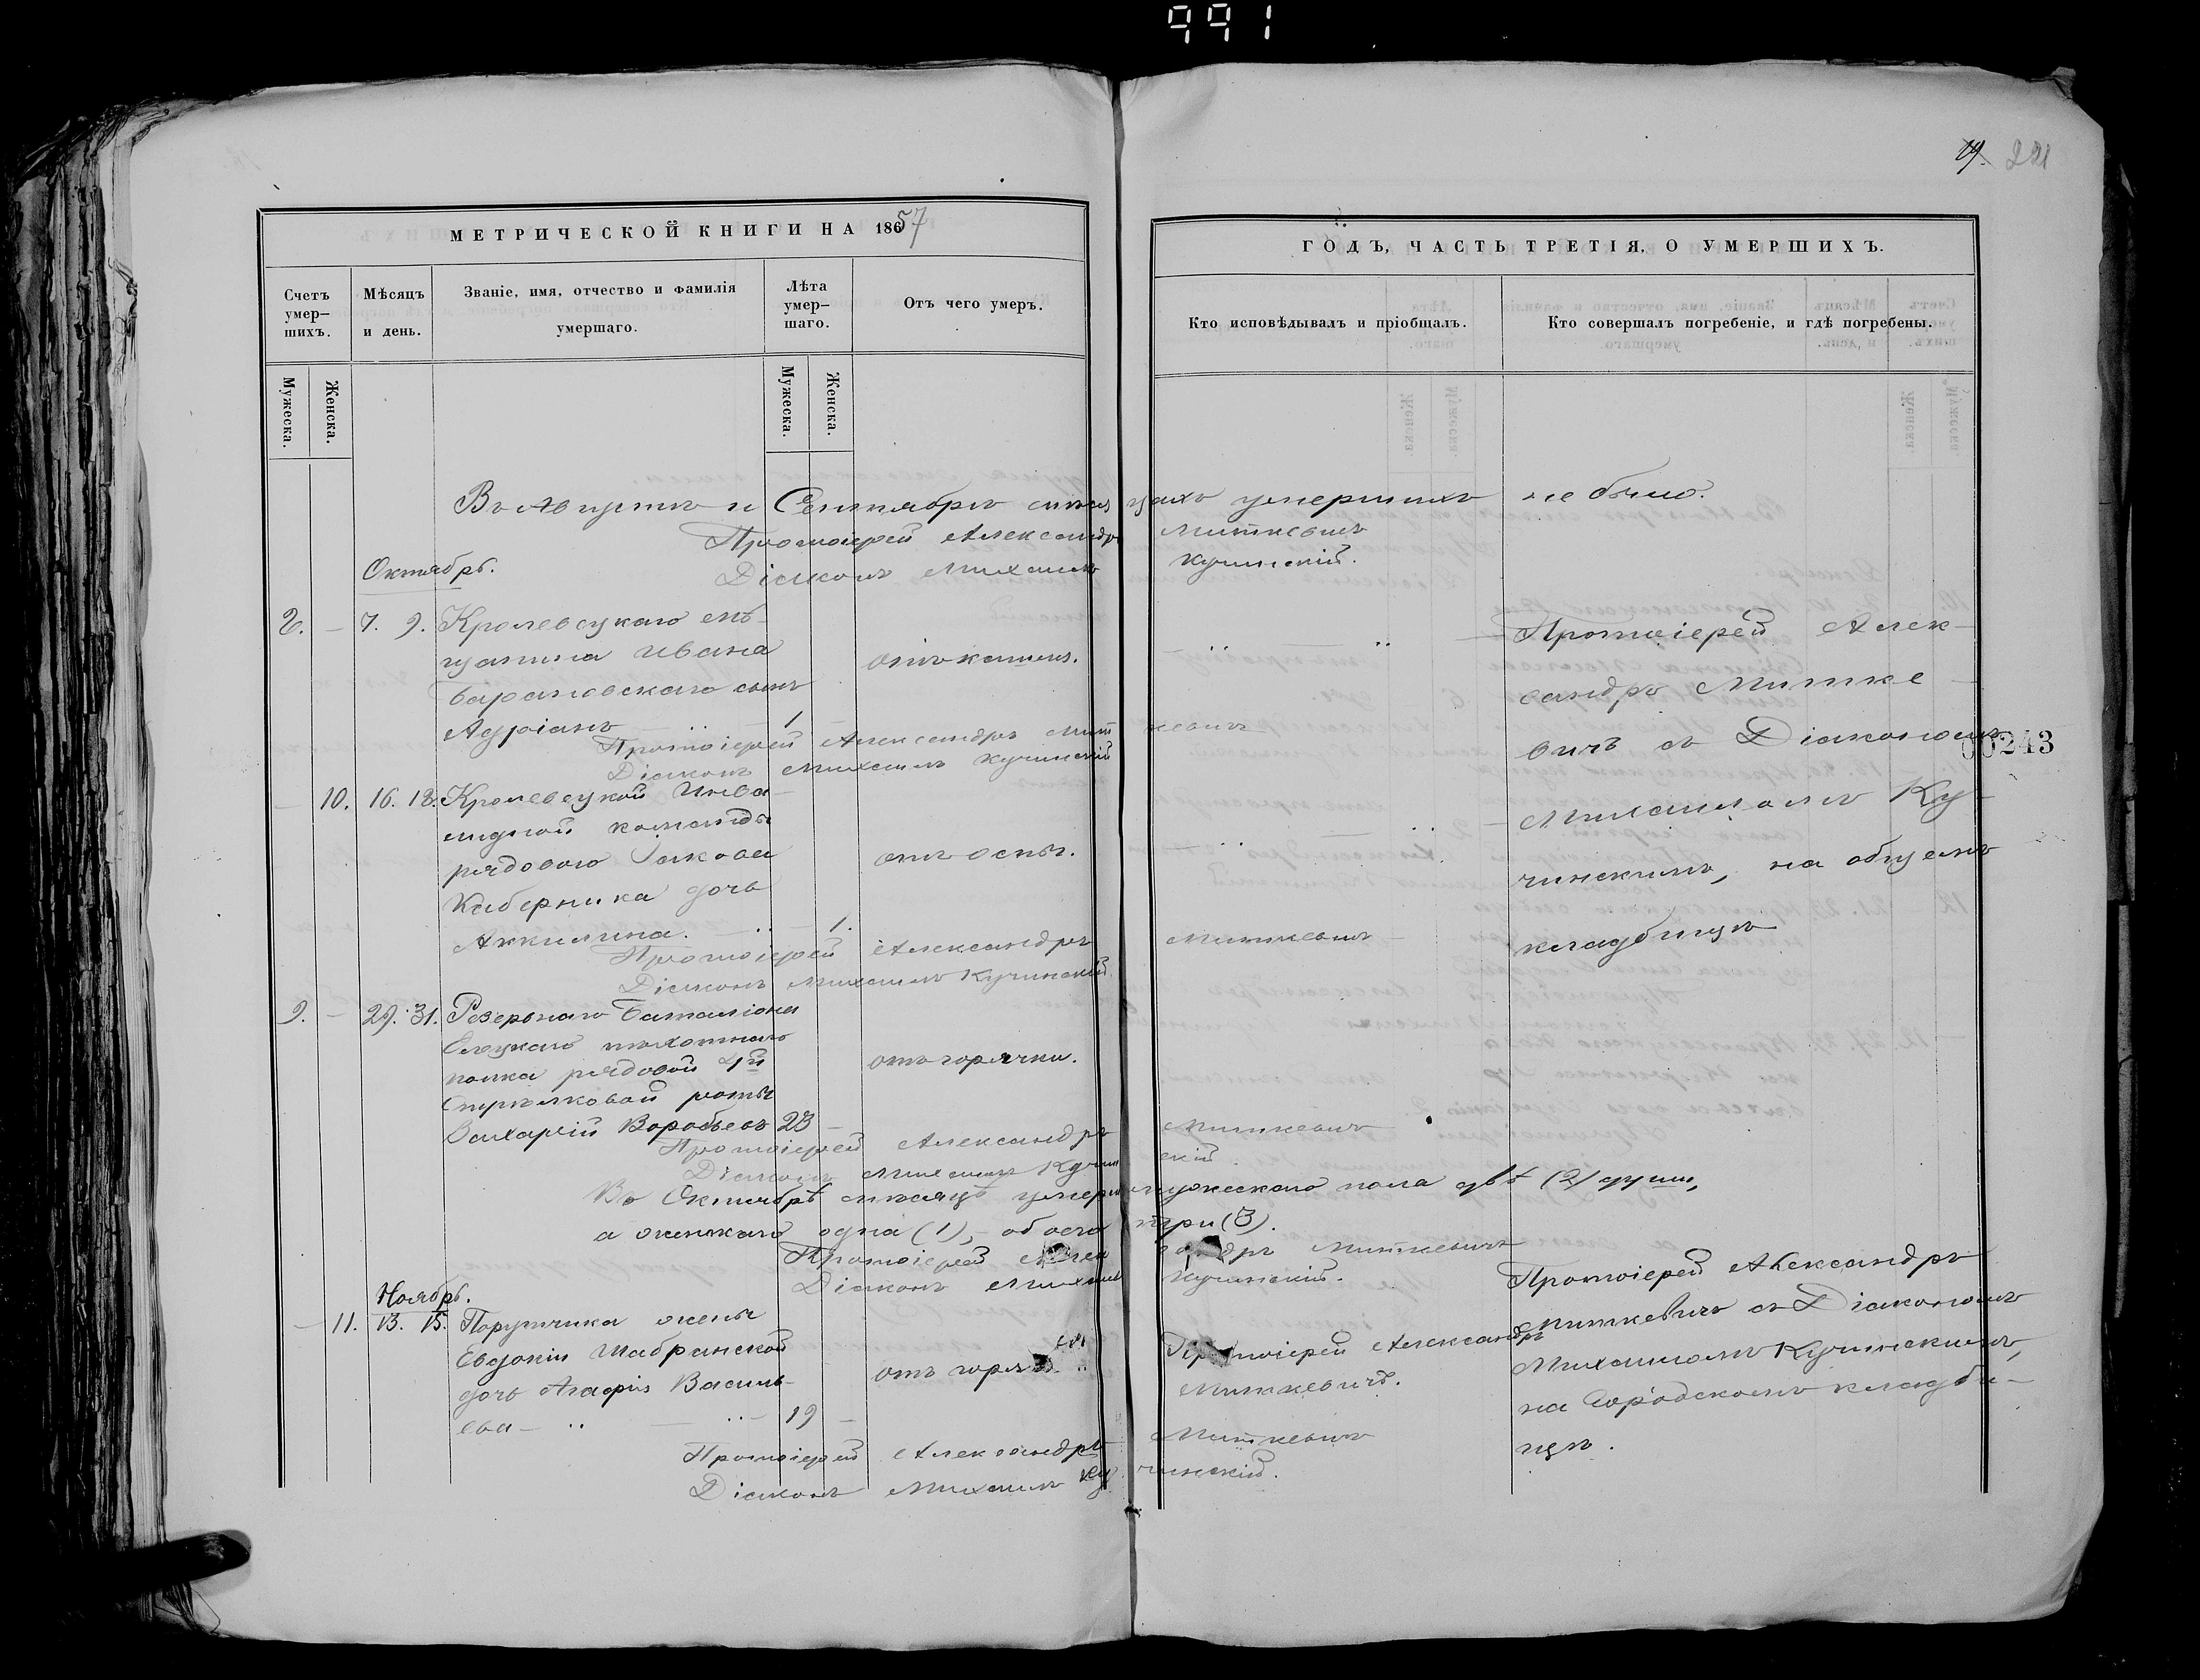 991
19. 221
МЕТРИЧЕСКОЙ КНИГИ НА 18657
ГОДЪ, ЧАСТЬ ТРЕТІЯ, О УМЕРШИХЪ.
Счетъ умер–шихъ.
Мѣсяцъ и день.
Званіе, имя, отчество и фамилія умершаго.
Лѣта умер–шаго.
Отъ чего умеръ.
Кто исповѣдывалъ и пріобщалъ.
Кто совершалъ погребеніе, и гдѣ погребены.
Мужеска.
Женска.
Мужеска.
Женска.
Въ Августѣ и Сентябрѣ мѣсяцахъ умершихъ не было.
Протоіерей Александръ Миткевичъ
Діаконъ Михаилъ Кучинскій.
Октябрь.
8. – 7. 9. Кролевецкаго мѣ–
щанина Ивана
Барановскаго сынъ
Адріанъ 1
отъ кашля.
Протоіерей Александръ Миткевичъ
Діаконъ Михаилъ Кучинскій
Протоіерей Алек–
сандръ Митке–
вичъ съ Діакономъ
Михаиломъ Ку–
чинскимъ, на общемъ
кладбищѣ
00243
– 10. 16. 18. Кролевецкой Инва–
лидной команды
рядового Іакова
Киберника дочь
Аккилина. 1.
отъ оспы.
Протоіерей Александръ Миткевичъ
Діаконъ Михаилъ Кучинскій.
9. – 29. 31. Резервнаго Баталіона
Елецкаго пѣхотнаго
полка рядовой 4й
Стрѣлковой роты
Захарій Воробьевъ 23 –
отъ горячки.
Протоіерей Александръ Миткевичъ
Діаконъ Михаилъ Кучинскій.
Въ Октябрѣ мѣсяцѣ умерло мужескаго пола двѣ (2) души,
а женскаго одна (1), – обоего три (3).
Протоіерей Александръ Миткевичъ
Діаконъ Михаилъ Кучинскій.
Ноябрь.
– 11. 13. 15. Поручика жены
Евдокіи Шабранской
дочь Агафія Василь–
ева – 19 –
отъ горяч
Протоіерей Александръ
Миткевичъ.
Протоіерей Александръ
Миткевичъ съ Діакономъ
Михаиломъ Кучинскимъ,
на Городскомъ кладби–
щѣ.
Протоіерей Александръ Миткевичъ
Діаконъ Михаилъ Кучинскій.